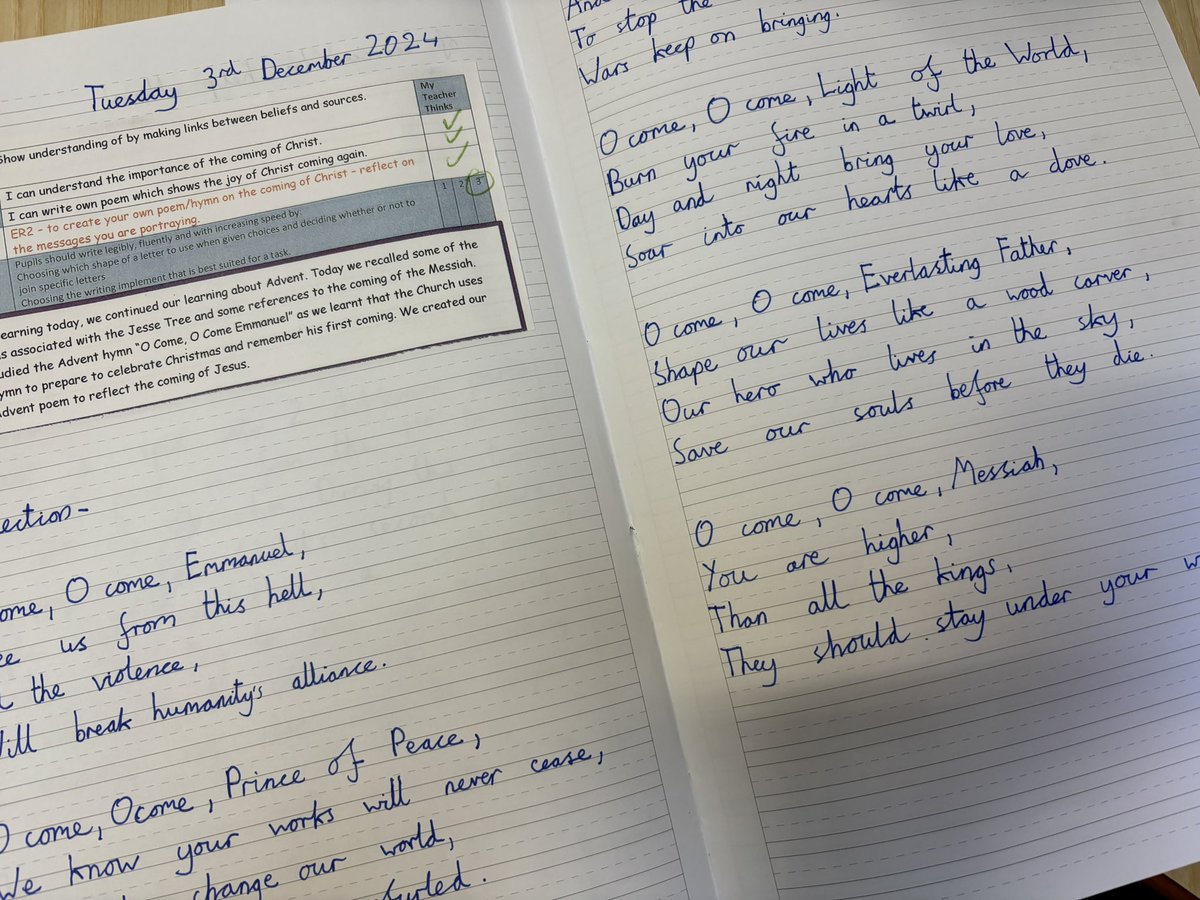 Tuesday 3rd December 2024
My
Teacher
Thinks
Show understanding of by making links between beliefs and sources.
I can understand the importance of the coming of Christ.
I can write own poem which shows the joy of Christ coming again.
ER2 - to create your own poem/hymn on the coming of Christ - reflect on
the messages you are portraying.
1 2 3
Pupils should write legibly, fluently and with increasing speed by:
Choosing which shape of a letter to use when given choices and deciding whether or not to
join specific letters
Choosing the writing implement that is best suited for a task.
earning today, we continued our learning about Advent. Today we recalled some of the
s associated with the Jesse Tree and some references to the coming of the Messiah.
udied the Advent hymn "O Come, O Come Emmanuel" as we learnt that the Church uses
ymn to prepare to celebrate Christmas and remember his first coming. We created our
Advent poem to reflect the coming of Jesus.
ection-
ome, O come, Emmanuel,
us from this hell,
the violence,
Will break humanity's alliance.
O come, O come, Prince of Peace,
We know your works will never cease,
change our world,
To stop the
Wars keep on bringing.
O come, O come, Light of the World,
Burn your fire in a twirl,
Day and night bring your love,
Soar into our hearts like a dove.
O come, O come, Everlasting Father,
Shape our lives like a wood carver,
Our hero who lives in the sky,
Save our souls before they die.
O come, O come, Messiah,
You are higher,
Than all the kings,
They should stay under your w